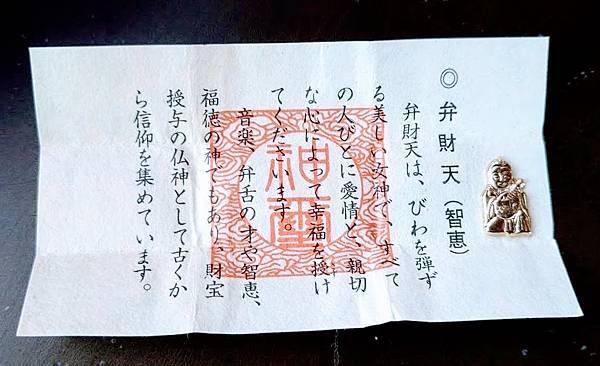 ◎弁財天（智恵）
弁財天は、びわを弾ず
る美しい女神で、すべて
の人びとに愛情と、親切
な心によって幸福を授け
てくださいます。
音楽、弁舌の才や智恵、
福徳の神でもあり、財宝
授与の仏神として古くか
ら信仰を集めています。
神璽